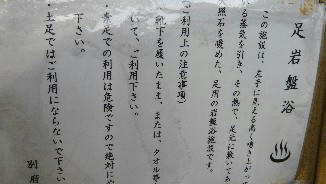 足岩盤浴
この施設は、左手に見える高く噴き上がって
いる蒸気を引き、その熱で、足元に敷いてある
照石を暖めた、足用の岩盤浴施設です。
(ご利用上の注意事項)
靴下を履いたまま、または、タオル等
いて、ご利用下さい。
・素足での利用は危険ですので絶対に
下さい。
・土足ではご利用にならないで下さい
別府